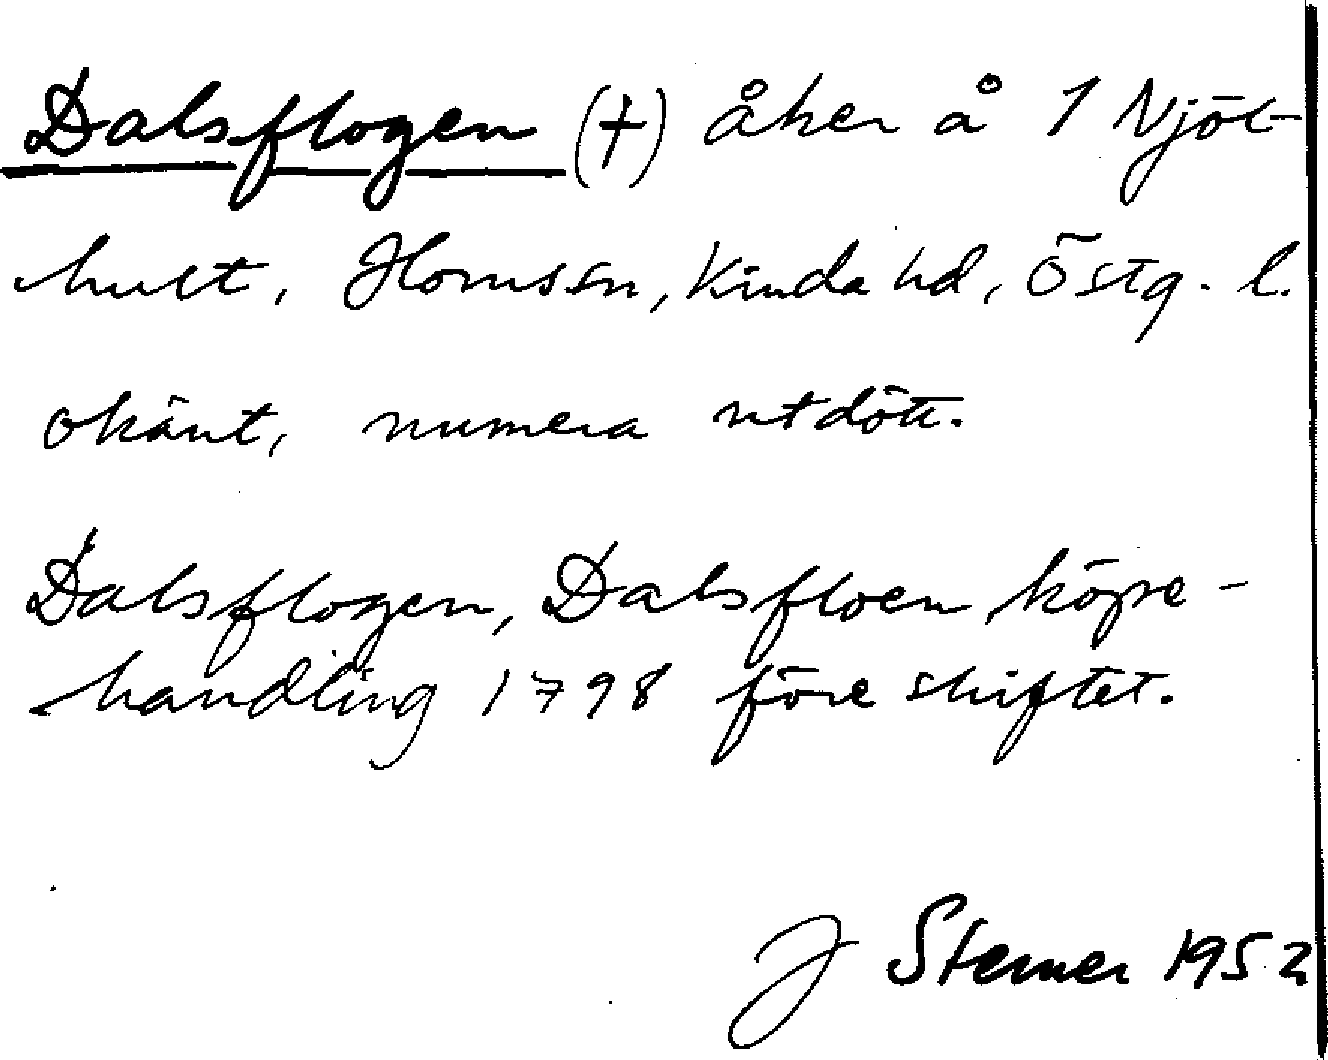 Dalsflogen (†) åker å 1 Njöl-
hult, Horns sn, Kinda hd, Östg. l.
okänt, numera utdött.
Dalsflogen, Dalsfloen köpe-
handling 1798 före skiftet.
J Sterner 1952